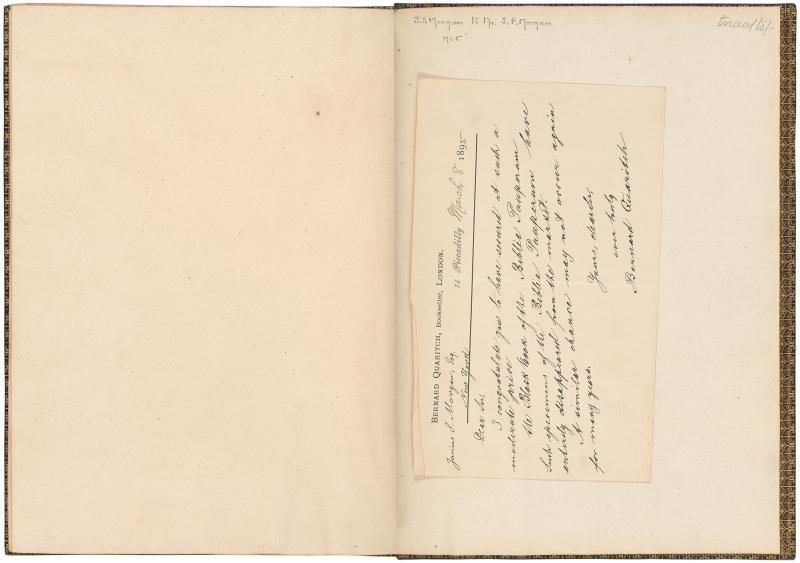 J.S. Morgan to Mr. J. P. Morgan
1905
tnaa/ts/-
BERNARD QUARITCH, Bookseller, LONDON.
Junius S. Morgan, Esq. 15 Piccadilly March 8 1895
New York
Dear Sir,
I congratulate you to have secured at such a
moderate price
the Block book of the Biblia Pauperum
Such specimens of the Biblia Pauperum have
entirely disappeared from the market.
A similar chance may not occur again
for many years.
Yours, dear Sir,
ever truly
Bernard Quaritch